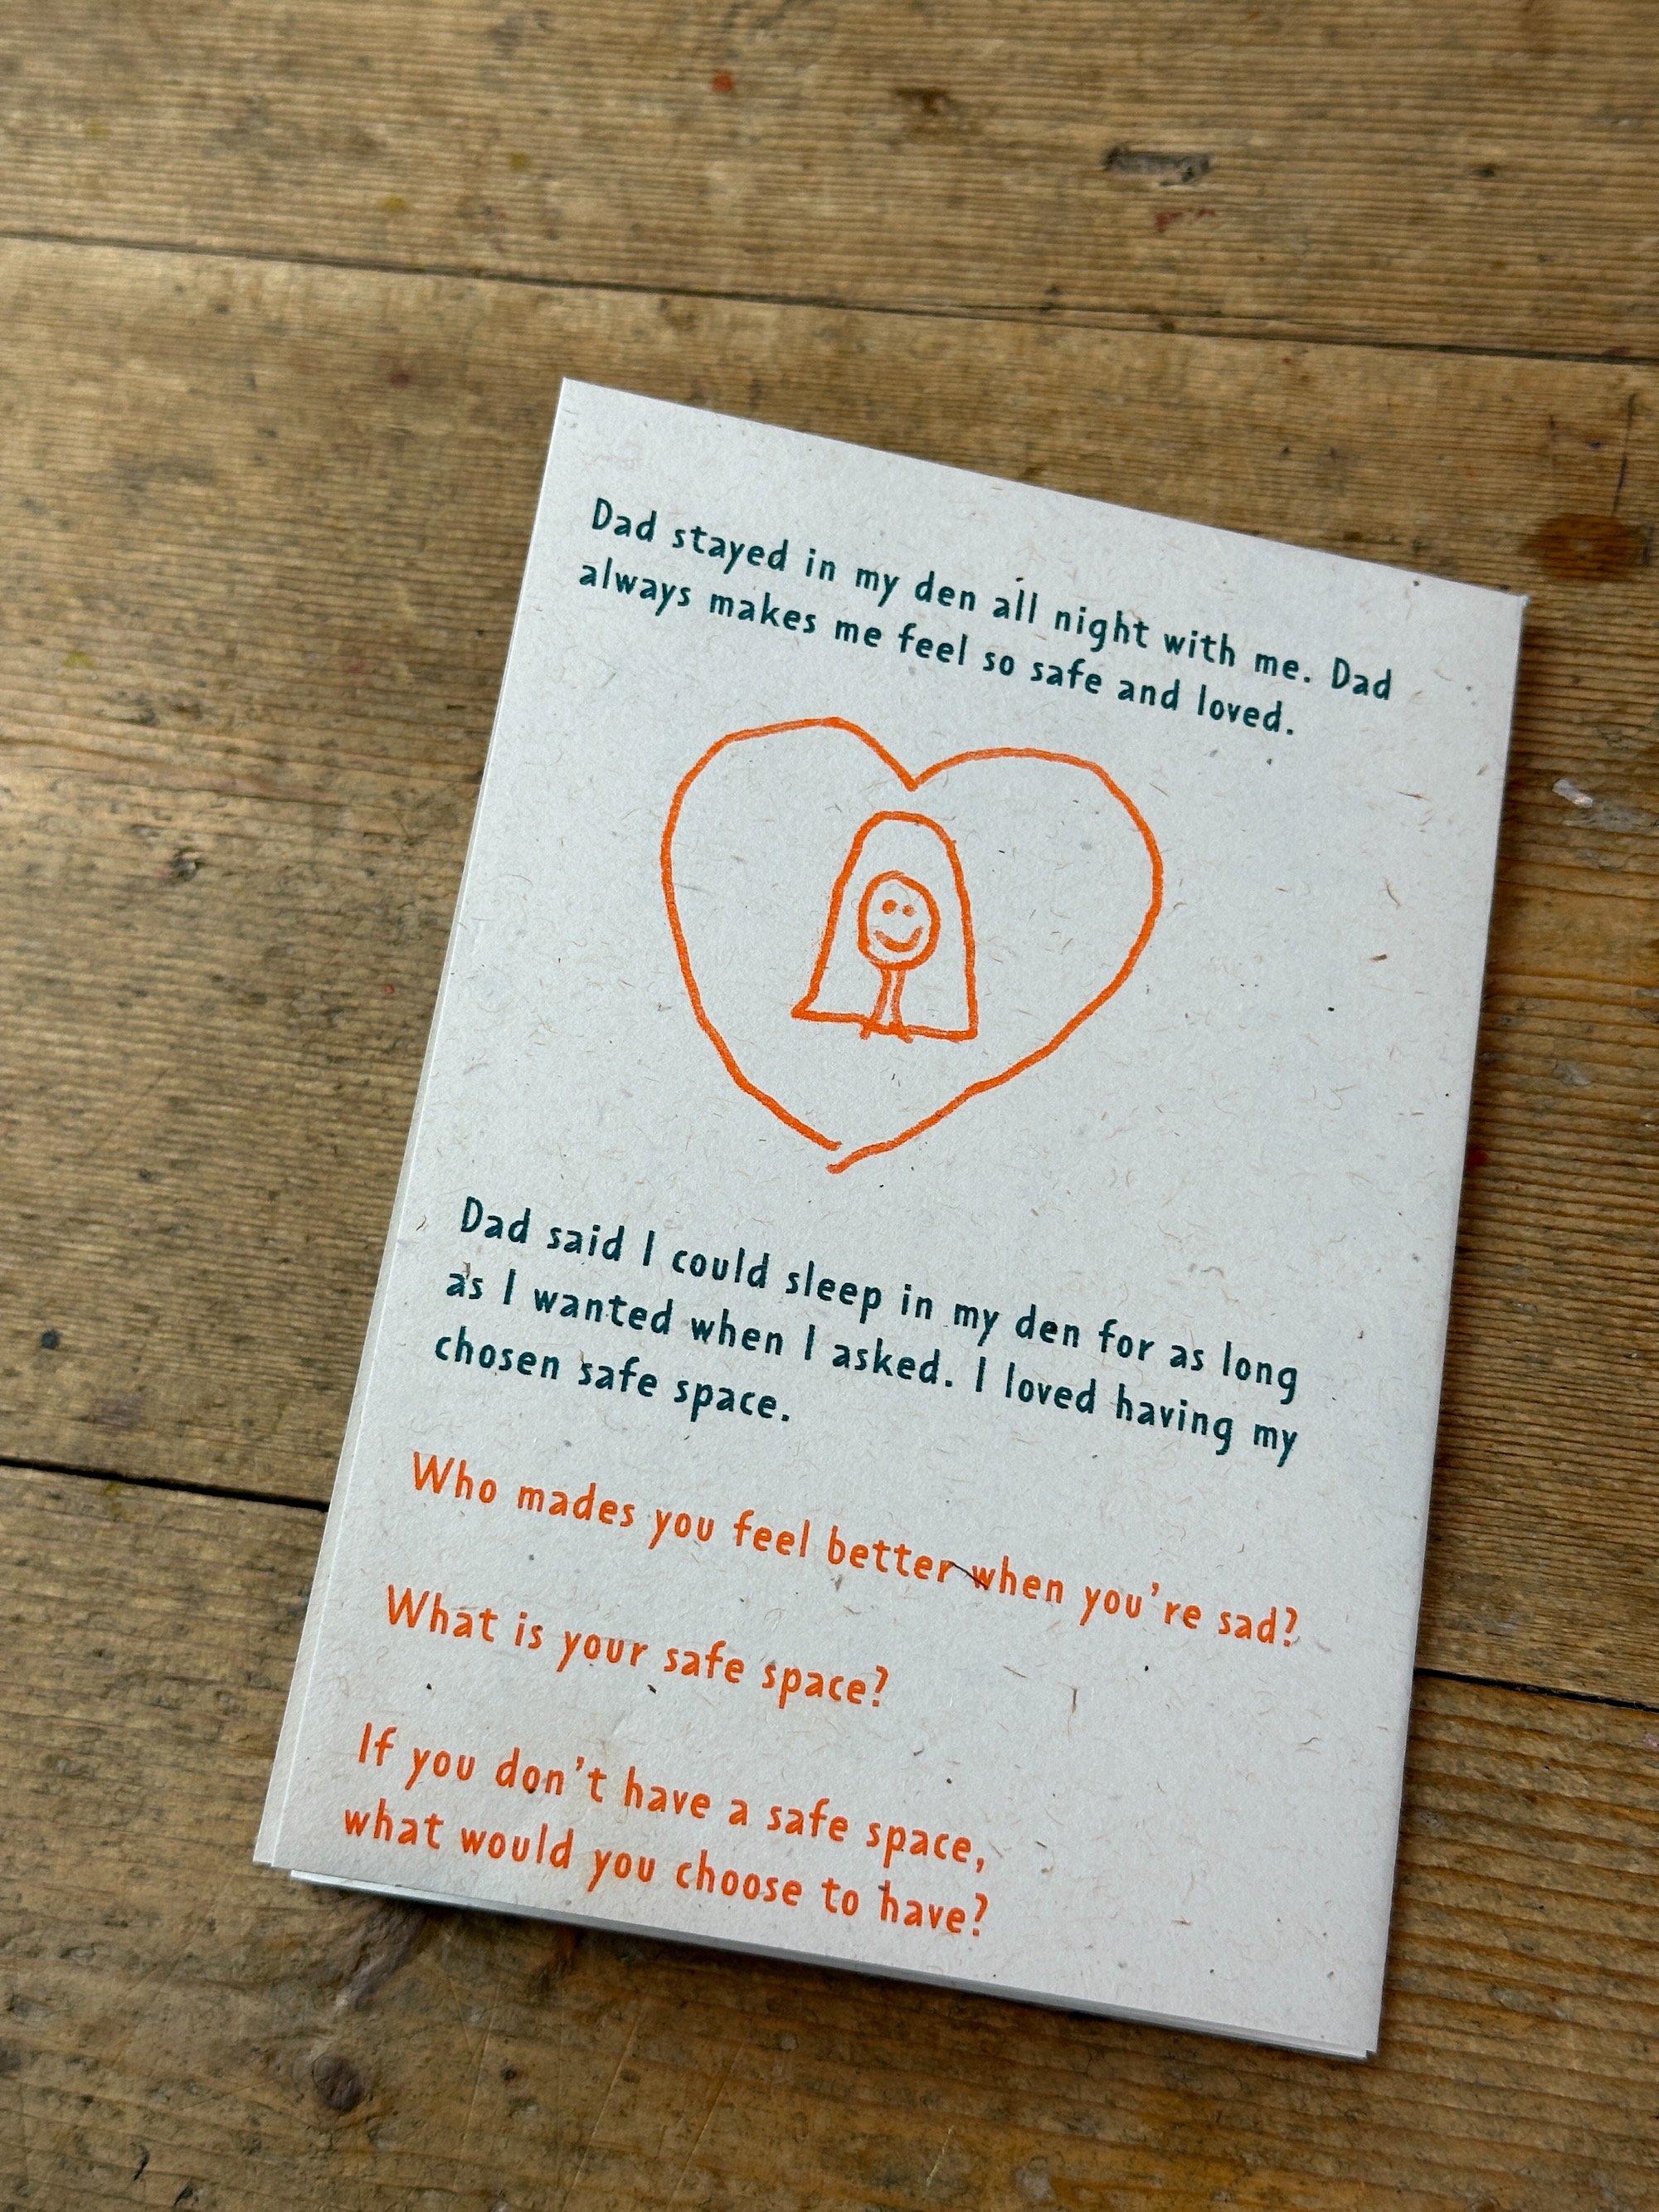 Dad stayed in my den all night with me. Dad
always makes me feel so safe and loved.
Dad said I could sleep in my den for as long
as I wanted when I asked. I loved having my
chosen safe space.
Who mades you feel better when you're sad?
What is your safe space?
If you don't have a safe space,
what would you choose to have?